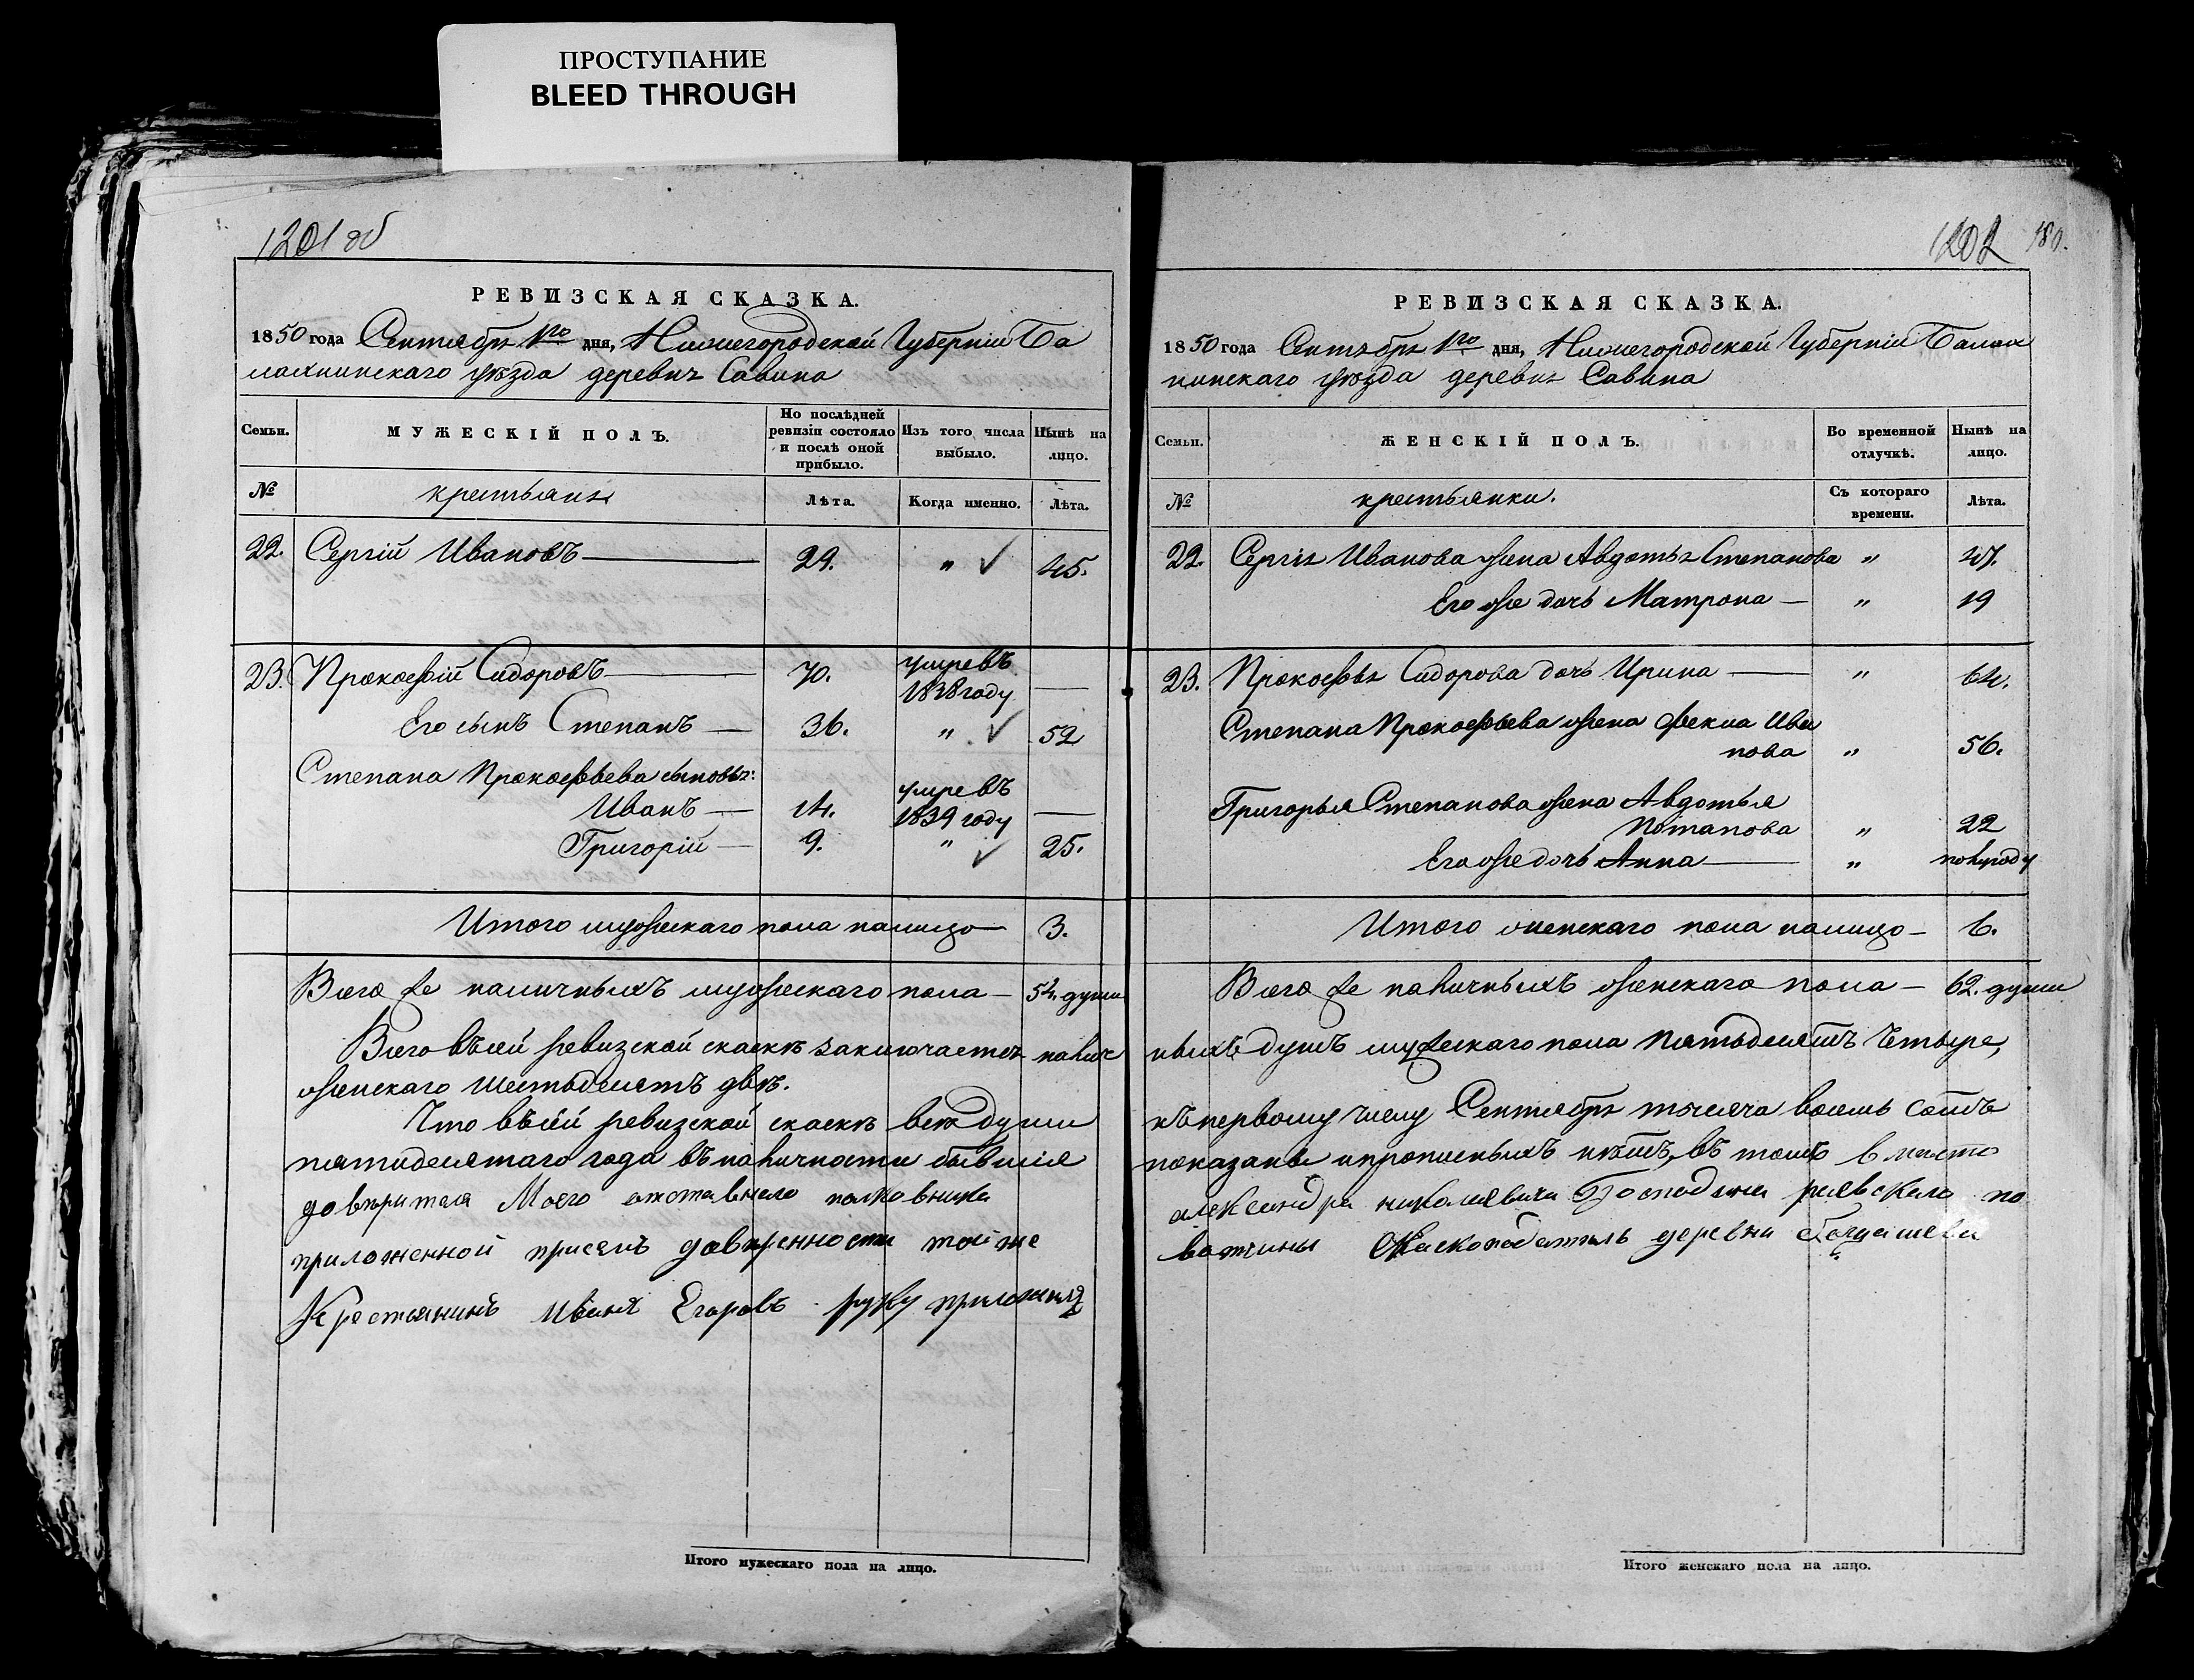 ПРОСТУПАНИЕ
BLEED THROUGH
1201 об
РЕВИЗСКАЯ СКАЗКА.
1850 года Сентября 1го дня, Нижегородской Губерніи Ба
лахнинскаго уѣзда деревни Савина
Семьи. МУЖЕСКІЙ ПОЛЪ. По послѣдней ревизіи состояло и послѣ оной прибыло. Изъ того числа выбыло. Нынѣ на лицо.
№ крестьяне Лѣта. Когда именно. Лѣта.
22. Сергій Ивановъ 29. " 45.
23. Прокофій Сидоровъ 70. умре въ 1838 году —
Его сынъ Степанъ — 36. " 52
Степана Прокофьева сыновья:
Иванъ — 14. умре въ 1839 году —
Григорій — 9. " 25.
Итого мужескаго пола налицо — 3.
Всего же наличныхъ мужескаго пола — 54. души
Всего въ сей ревизской скаскѣ заключается налич
женскаго шестьдесятъ двѣ.
Что в сей ревизской скаскѣ всѣ души
пятидесятаго года въ наличности бывшія
доверителя Моего отставнаго полковника
приложенной при семъ доверенности той же
Крестьянинъ Иванъ Егоровъ руку приложилъ
Итого мужескаго пола на лицо.
1202 180.
РЕВИЗСКАЯ СКАЗКА.
1850 года Сентября 1го дня, Нижегородской Губерніи Балах
нинскаго уѣзда деревни Савина
Семьи. ЖЕНСКІЙ ПОЛЪ. Во временной отлучкѣ. Нынѣ на лицо.
№ крестьянки. Съ котораго времени. Лѣта.
22. Сергія Иванова жена Авдотья Степанова " 47.
Его же дочь Матрона — " 19
23. Прокофья Сидорова дочь Ирина — " 64.
Степана Прокофьева жена Фекла Ива
нова " 56.
Григорья Степанова жена Авдотья
Потапова " 22
Его же дочь Анна — " полугоду
Итого женскаго пола налицо — 6.
Всего же наличныхъ женскаго пола — 62. души
ныхъ душъ мужескаго пола пятьдесятъ четыре,
къ первому числу Сентября тысяча восемь сотъ
показаны и прописныхъ нѣтъ, въ томъ вместо
александра николаевича Господина раевскаго по
вотчины Скаскоподатель деревни
Итого женскаго пола на лицо.